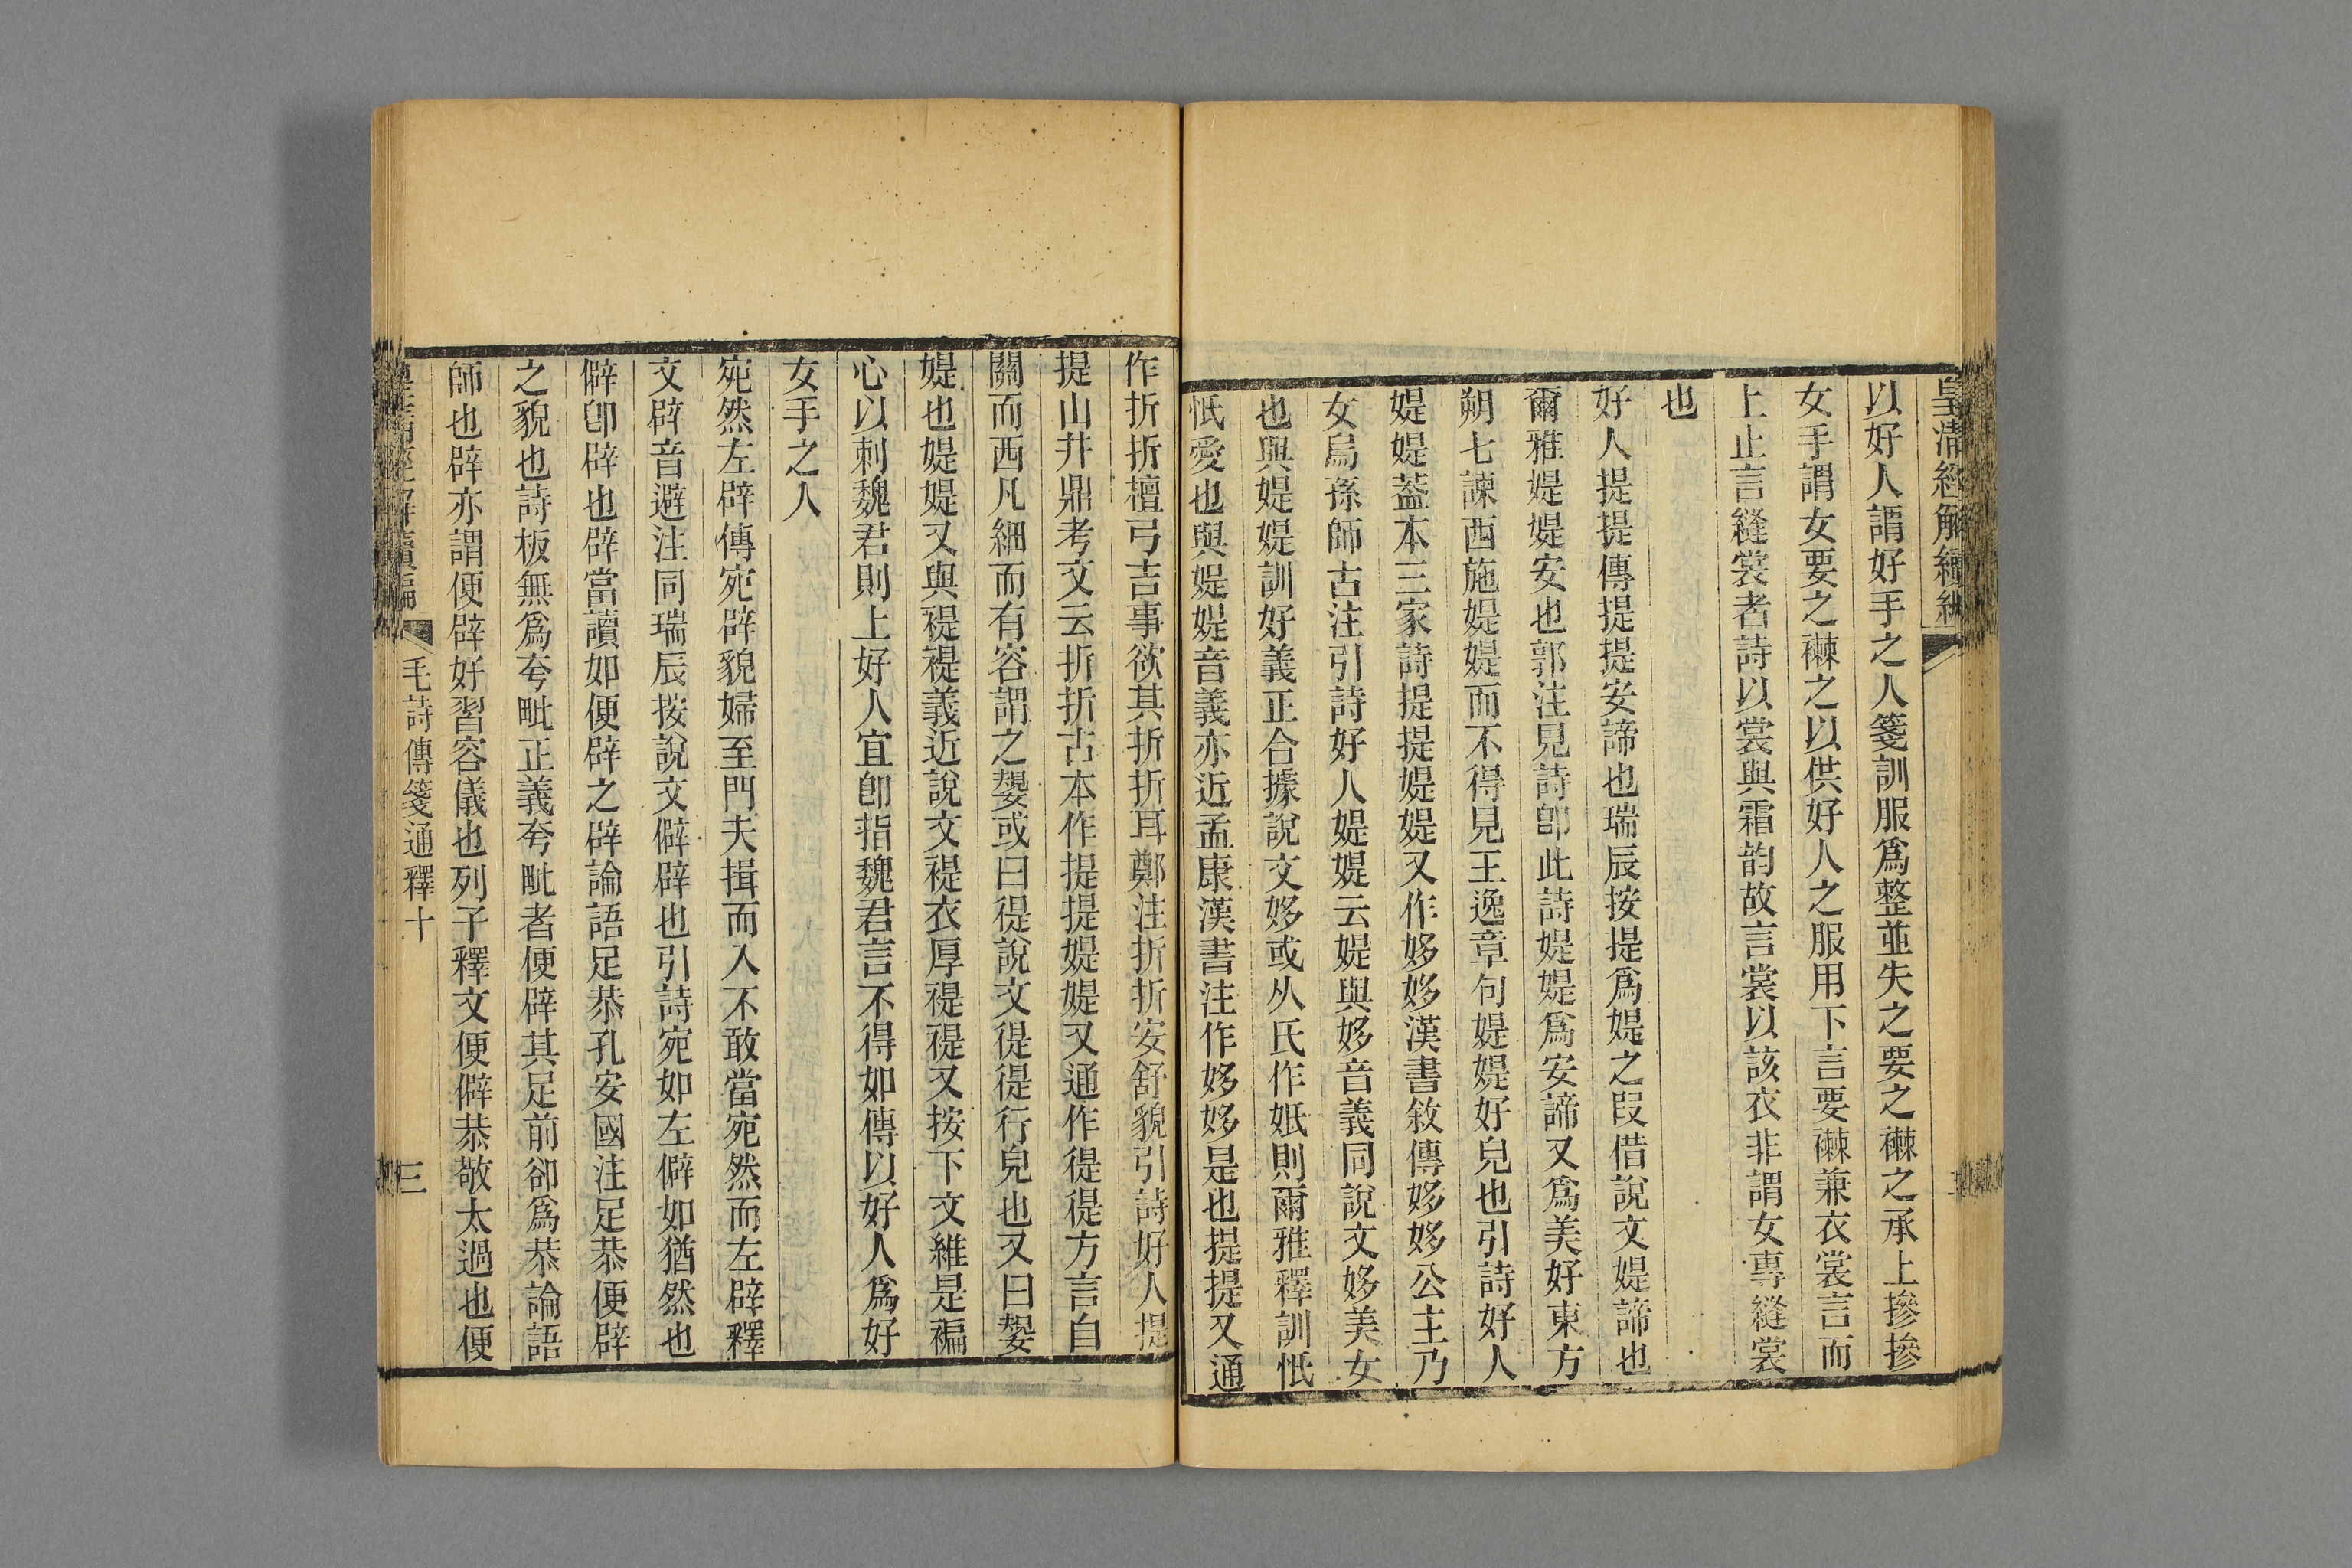 皇清經解續編
以好人謂好手之人箋訓服爲整並失之要之襋之承上摻摻
女手謂女要之襋之以供好人之服用下言要襋兼衣裳言而
上止言縫裳者詩以裳與霜韵故言裳以該衣非謂女專縫裳
也
好人提提傳提提安諦也瑞辰按提爲媞之叚借說文媞諦也
爾雅媞媞安也郭注見詩卽此詩媞媞爲安諦又爲美好東方
朔七諫西施媞媞而不得見王逸章句媞媞好皃也引詩好人
媞媞葢本三家詩提提媞媞又作姼姼漢書敘傳姼姼公主乃
女烏孫師古注引詩好人媞媞云媞與姼音義同說文姼美女
也與媞媞訓好義正合據說文姼或从氏作妷則爾雅釋訓忯
忯愛也與媞媞音義亦近孟康漢書注作姼姼是也提提又通
作折折檀弓吉事欲其折折耳鄭注折折安舒貌引詩好人提
提山井鼎考文云折折古本作提提媞媞又通作徥徥方言自
關而西凡細而有容謂之嫢或曰徥說文徥徥行皃也又曰嫢
媞也媞媞又與褆褆義近說文褆衣厚褆褆又按下文維是褊
心以刺魏君則上好人宜卽指魏君言不得如傳以好人爲好
女手之人
宛然左辟傳宛辟貌婦至門夫揖而入不敢當宛然而左辟釋
文辟音避注同瑞辰按說文僻辟也引詩宛如左僻如猶然也
僻卽辟也辟當讀如便辟之辟論語足恭孔安國注足恭便辟
之貌也詩板無爲夸毗正義夸毗者便辟其足前卻爲恭論語
師也辟亦謂便辟好習容儀也列子釋文便僻恭敬太過也便
皇清經解續編
毛詩傳箋通釋十
三